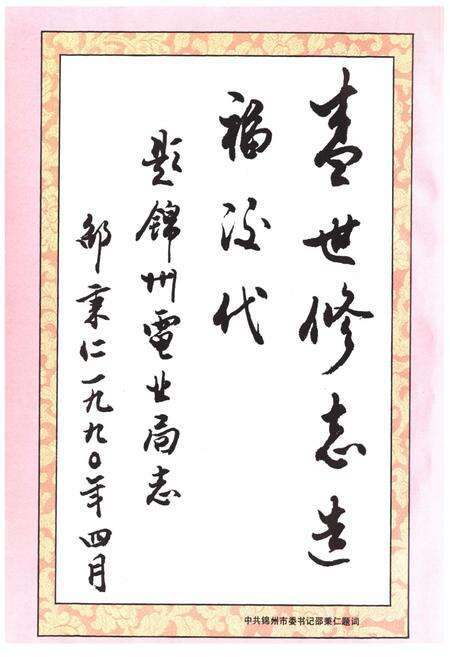 盛世修志造
福後代
题錦州電业局志
邵秉仁一九九〇年四月
中共锦州市委书记邵秉仁题词